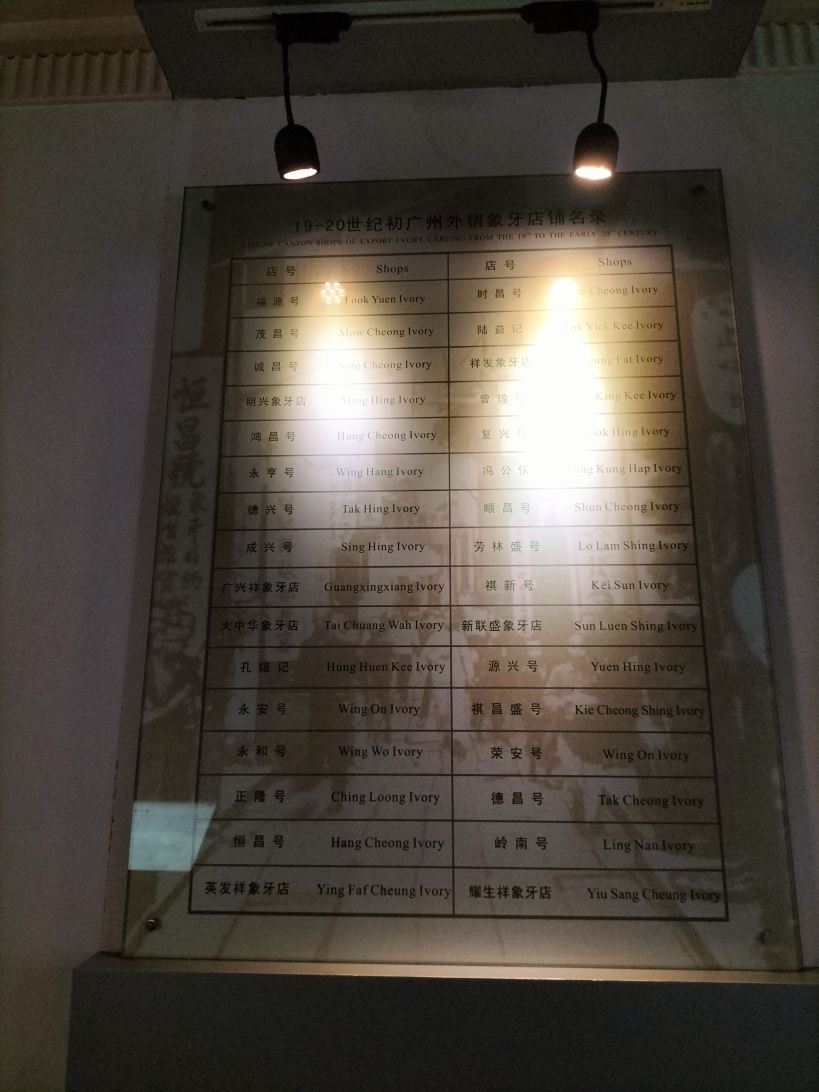 19-20世纪初广州外销象牙店铺名录
LIST OF CANTON SHOPS OF EXPORT IVORY CARVING FROM THE 19TH TO THE EARLY 20TH CENTURY
店号 Shops 店号 Shops
福源号 Fook Yuen Ivory 时昌号 Cheong Ivory
茂昌号 Mow Cheong Ivory 陆益记 Yick Kee Ivory
诚昌号 Sing Cheong Ivory 祥发象牙店 Fat Ivory
明兴象牙店 Ming Hing Ivory 曾琼 King Kee Ivory
鸿昌号 Hung Cheong Ivory 复兴号 Hing Ivory
永亨号 Wing Hang Ivory 冯公侠 Kung Hap Ivory
德兴号 Tak Hing Ivory 顺昌号 Shun Cheong Ivory
成兴号 Sing Hing Ivory 芳林盛号 Lo Lam Shing Ivory
广兴祥象牙店 Guangxingxiang Ivory 祺新号 Kei Sun Ivory
大中华象牙店 Tai Chuang Wah Ivory 新联盛象牙店 Sun Luen Shing Ivory
孔煊记 Hung Huen Kee Ivory 源兴号 Yuen Hing Ivory
永安号 Wing On Ivory 祺昌盛号 Kie Cheong Shing Ivory
永和号 Wing Wo Ivory 荣安号 Wing On Ivory
正隆号 Ching Loong Ivory 德昌号 Tak Cheong Ivory
恒昌号 Hang Cheong Ivory 岭南号 Ling Nan Ivory
英发祥象牙店 Ying Faf Cheung Ivory 耀生祥象牙店 Yiu Sang Cheung Ivory
恒昌號